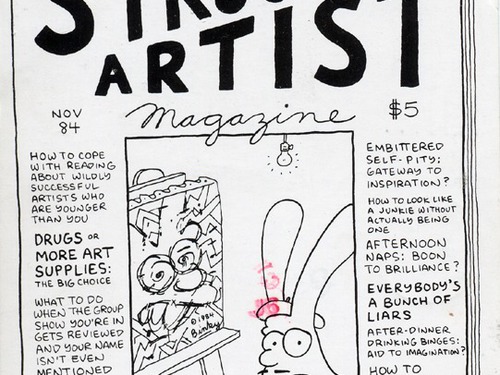 ARTIST
Magazine
NOV
84
$5
HOW TO COPE
WITH READING
ABOUT WILDLY
SUCCESSFUL
ARTISTS WHO
ARE YOUNGER
THAN YOU
DRUGS OR
MORE ART
SUPPLIES:
THE BIG CHOICE
WHAT TO DO
WHEN THE GROUP
SHOW YOU'RE IN
GETS REVIEWED
AND YOUR NAME
ISN'T EVEN
MENTIONED
© 1984
Binky
EMBITTERED
SELF-PITY:
GATEWAY TO
INSPIRATION?
HOW TO LOOK LIKE
A JUNKIE WITHOUT
ACTUALLY BEING
ONE
AFTERNOON
NAPS: BOON
TO BRILLIANCE?
EVERYBODY'S
A BUNCH OF
LIARS
AFTER-DINNER
DRINKING BINGES:
AID TO IMAGINATION?
HOW TO